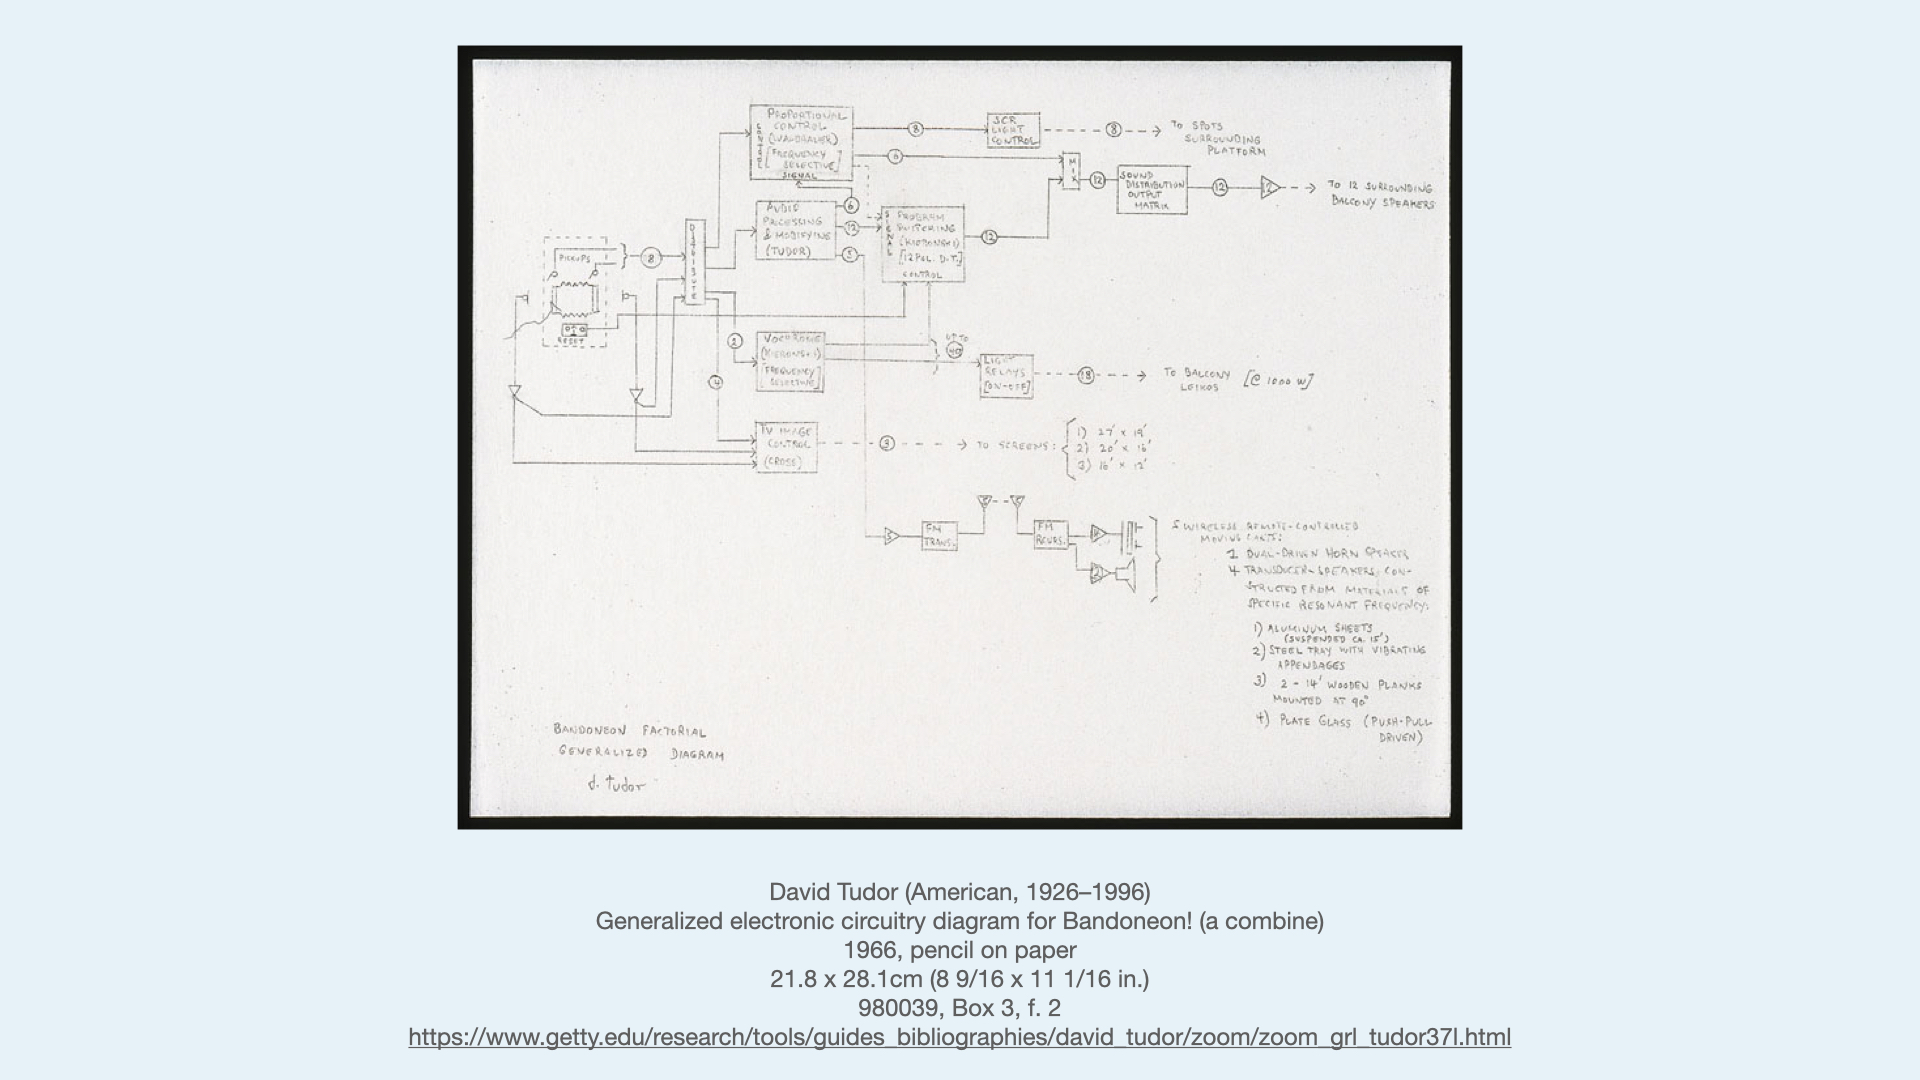 PROPORTIONAL
CONTROL
(WALDHAUER)
[FREQUENCY
SELECTIVE]
SIGNAL
CONTROL
8
SCR
LIGHT
CONTROL
8
TO SPOTS
SURROUNDING
PLATFORM
6
MIX
12
SOUND
DISTRIBUTION
OUTPUT
MATRIX
12
12
TO 12 SURROUNDING
BALCONY SPEAKERS
AUDIO
PROCESSING
& MODIFYING
(TUDOR)
6
12
5
SIGNAL
PROGRAM
SWITCHING
(KIERONSKI)
[12 POL. D.T.]
CONTROL
12
PICKUPS
8
DISTRIBUTE
RESET
2
4
VOCHROME
(KIERONSKI)
[FREQUENCY
SELECTIVE]
UP TO
40
LIGHT
RELAYS
[ON-OFF]
18
TO BALCONY
LEIKOS [@ 1000 W]
TV IMAGE
CONTROL
(CROSS)
3
TO SCREENS:
1) 27' x 19'
2) 20' x 16'
3) 16' x 12'
5
FM
TRANS.
FM
RCVRS.
5 WIRELESS REMOTE-CONTROLLED
MOVING CARTS:
1 DUAL-DRIVEN HORN SPEAKER
4 TRANSDUCER-SPEAKERS, CON-
STRUCTED FROM MATERIALS OF
SPECIFIC RESONANT FREQUENCY:
1) ALUMINUM SHEETS
(SUSPENDED CA. 15')
2) STEEL TRAY WITH VIBRATING
APPENDAGES
3) 2 - 14' WOODEN PLANKS
MOUNTED AT 90°
4) PLATE GLASS (PUSH-PULL
DRIVEN)
BANDONEON FACTORIAL
GENERALIZED DIAGRAM
d. tudor
David Tudor (American, 1926–1996)
Generalized electronic circuitry diagram for Bandoneon! (a combine)
1966, pencil on paper
21.8 x 28.1cm (8 9/16 x 11 1/16 in.)
980039, Box 3, f. 2
https://www.getty.edu/research/tools/guides_bibliographies/david_tudor/zoom/zoom_grl_tudor37l.html